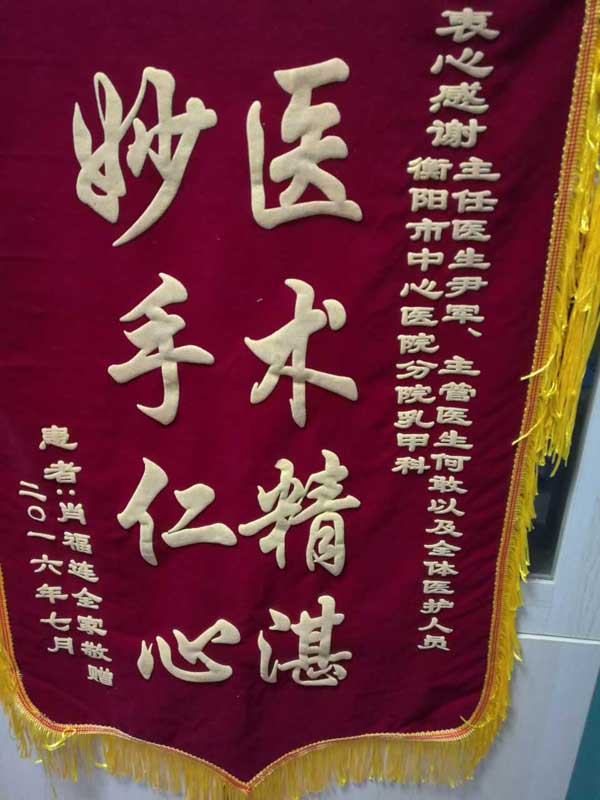 衷心感谢
衡阳市中心医院分院乳甲科
主任医生尹军、主管医生何敢以及全体医护人员
医术精湛
妙手仁心
患者:肖福连全家敬赠
二〇一六年七月